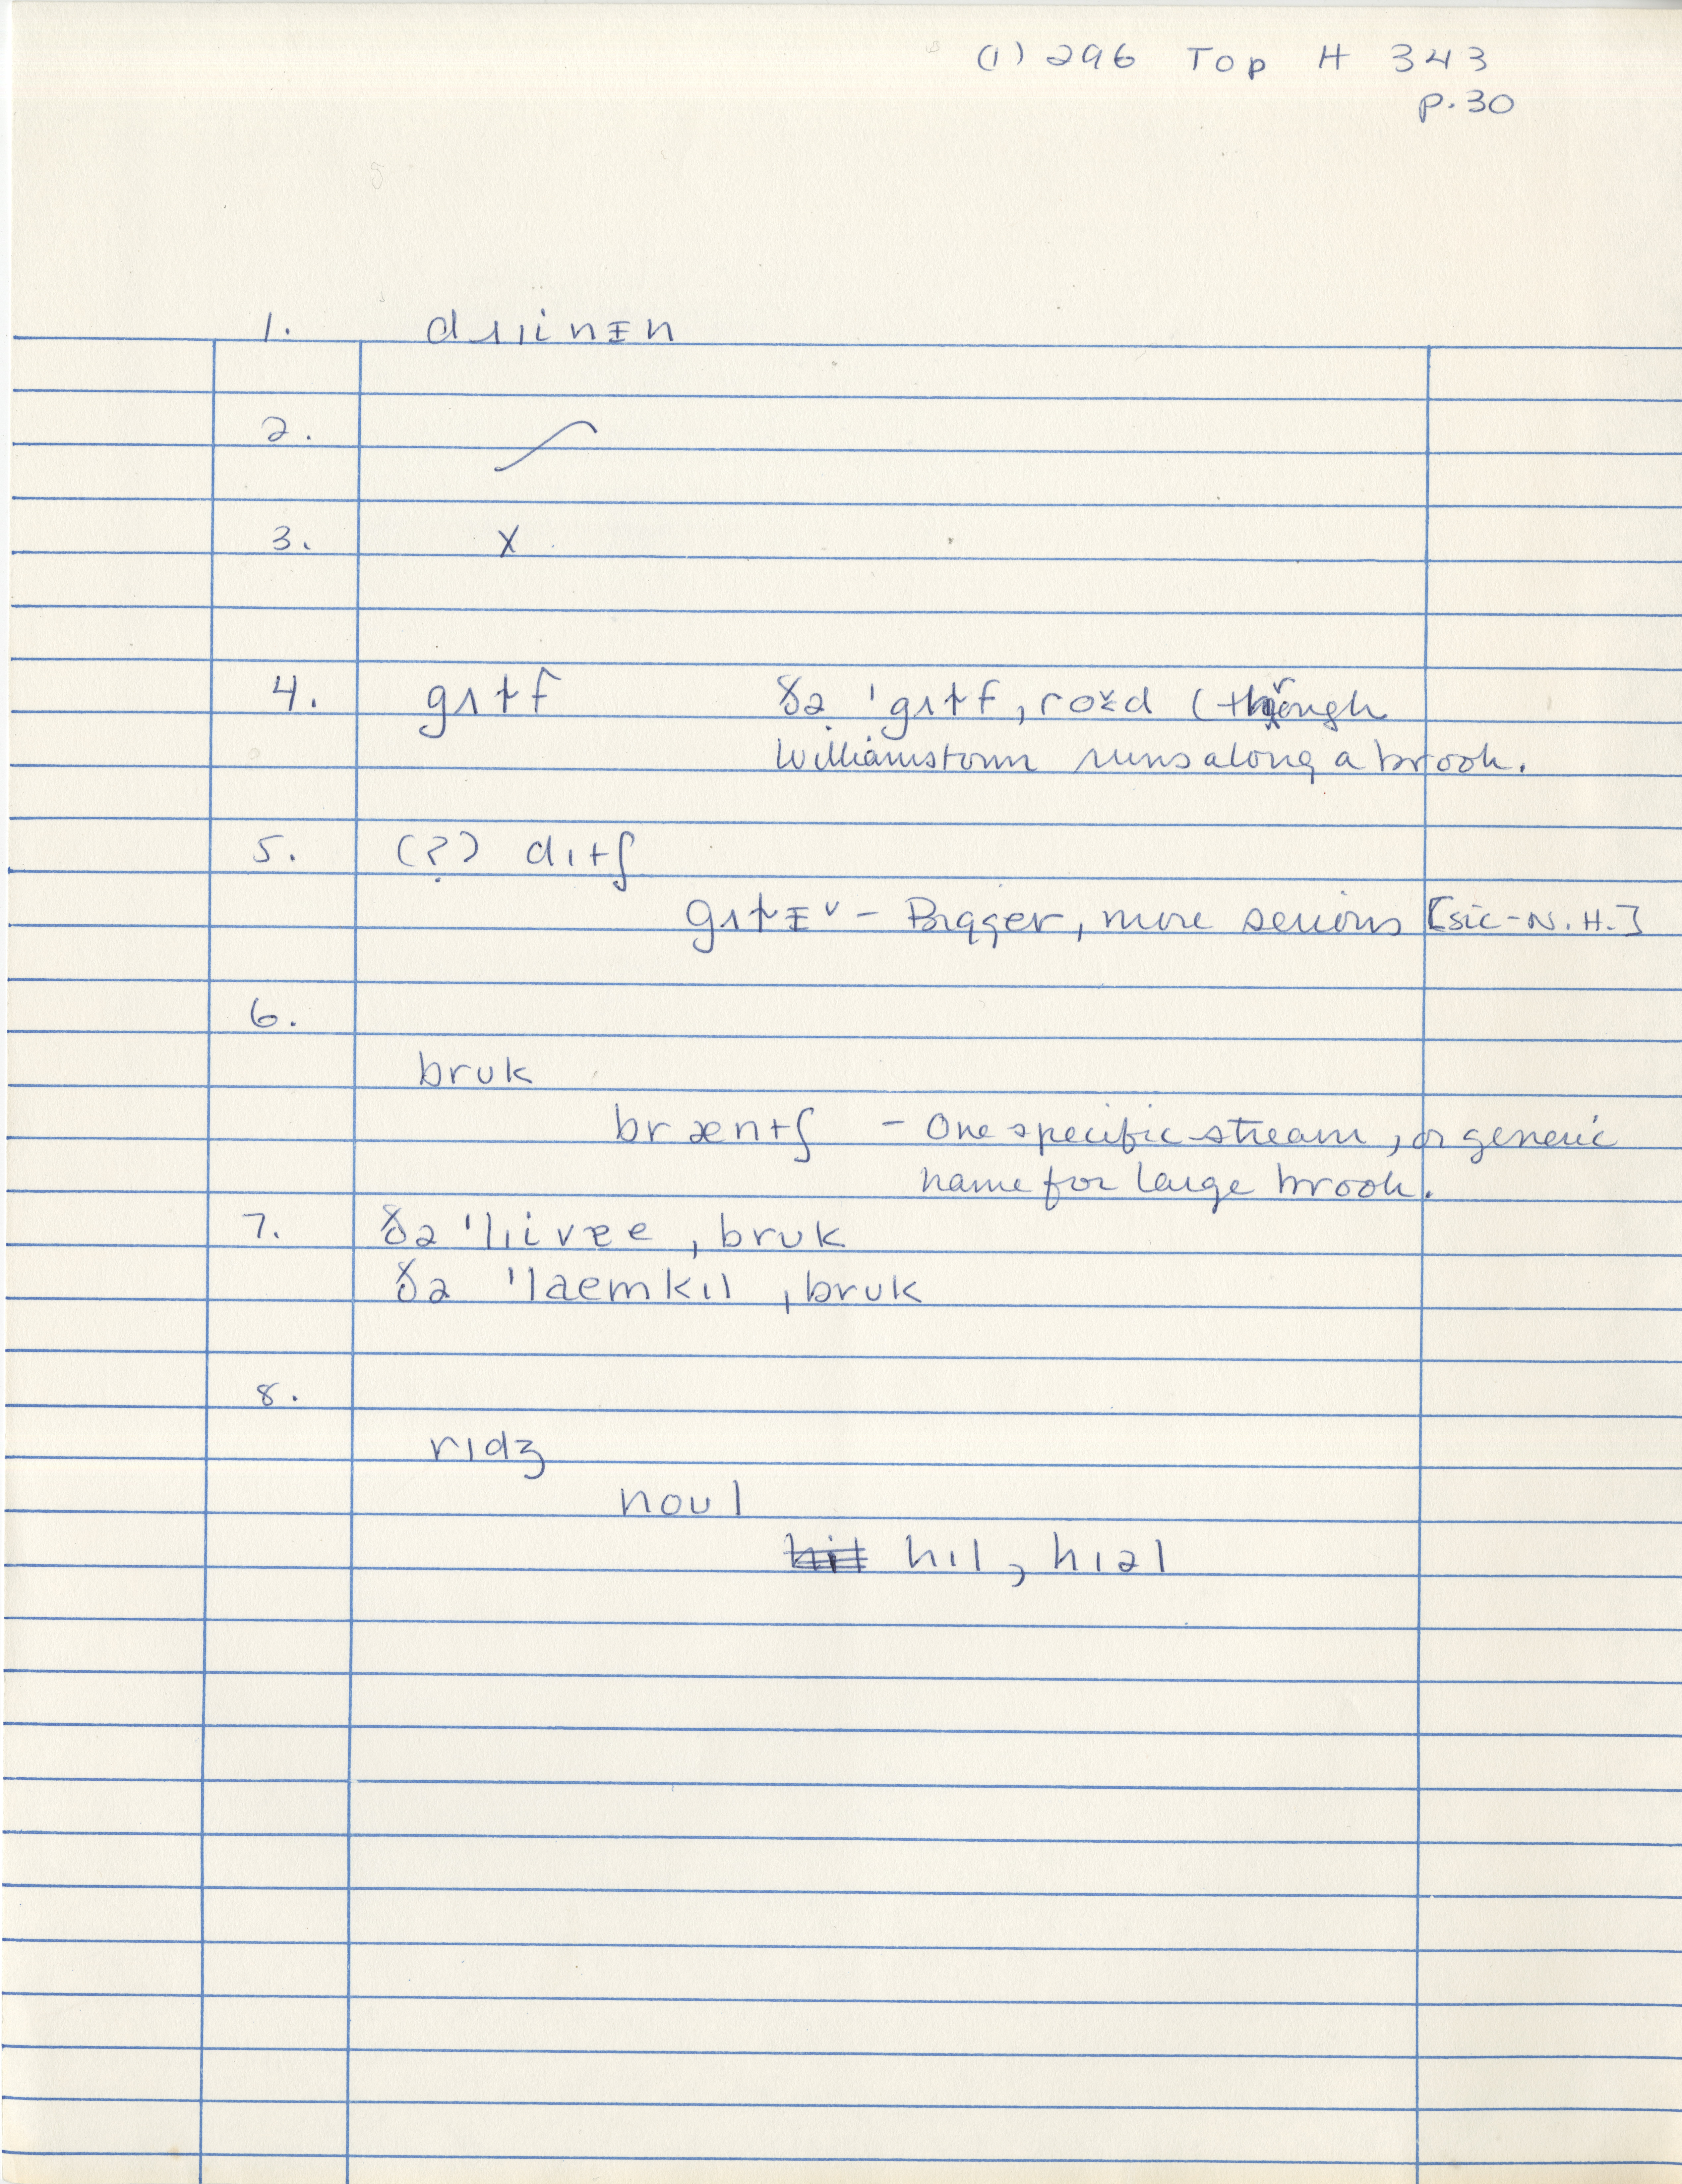 (1) 296 Top H 343
p. 30
1. drɪinɪ̵n
2. ⟋
3. X
4. gʌɫf ðə ˈgʌɫf ˌroɤd (through
Williamstown runs along a brook.
5. (?) dɪtʃ
gʌɫɪ̵ ˅ – Bigger, more serious [sic - N. H.]
6.
bruk
bræntʃ – One specific stream, or generic
name for large brook.
7. ðə ˈ ˌbruk
ðə ˈlaemkɪl ˌbruk
8.
rɪdʒ
noul
hɪl, hɪəl